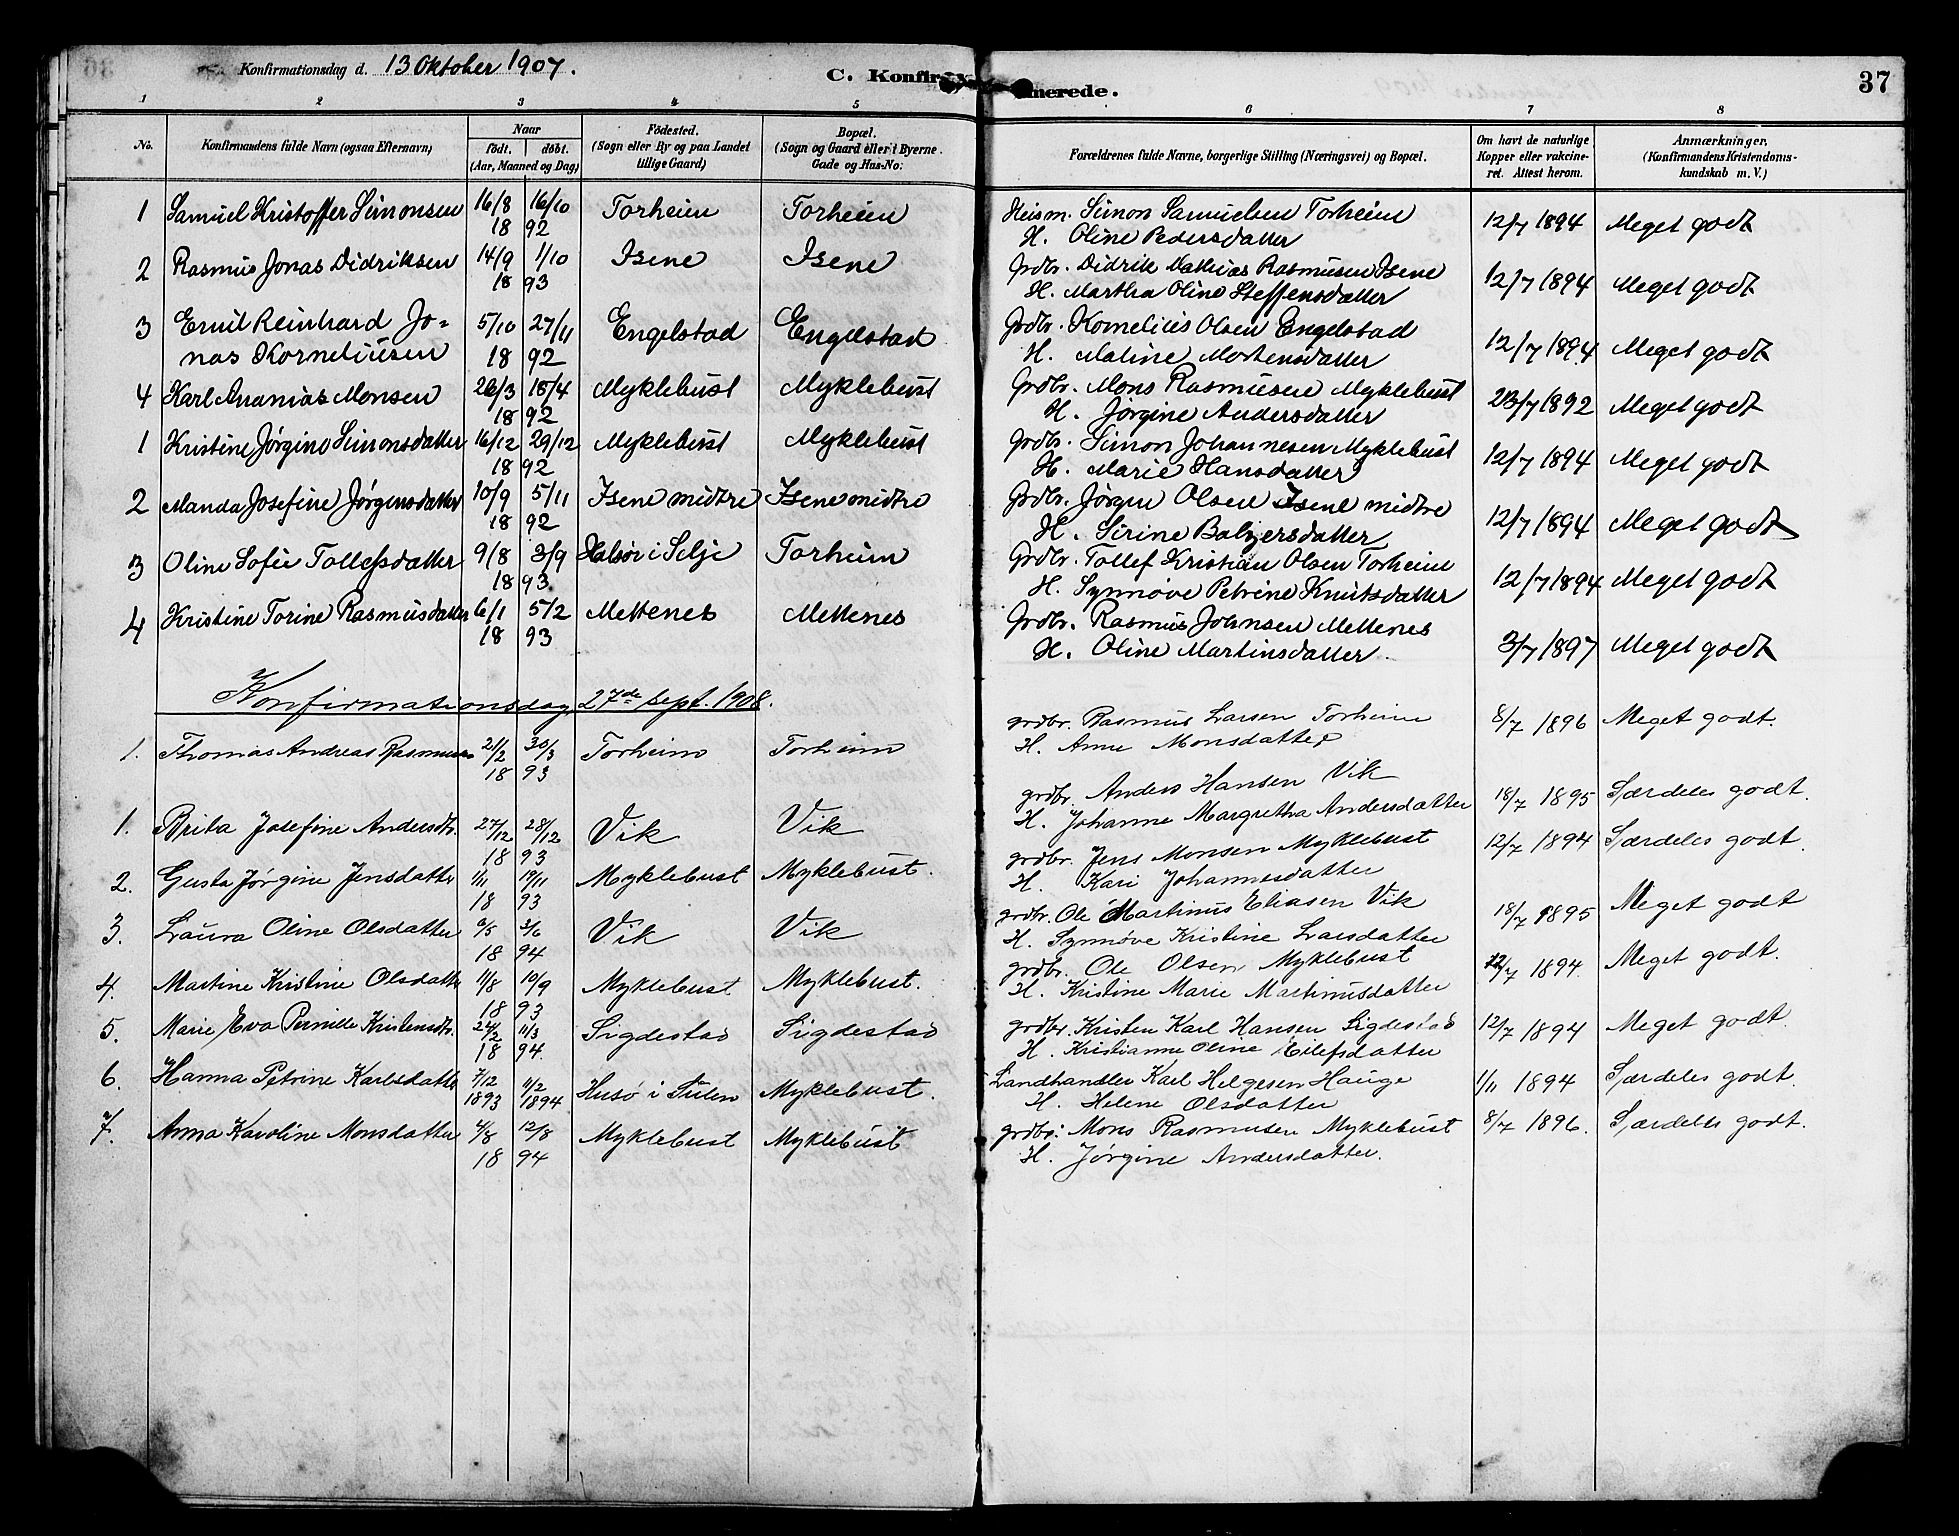 Konfirmationsdag d. 13 Oktober 1907.
C. Konfirmerede.
37
1 2 3 4 5 6 7 8
No.
Konfirmandens fulde Navn (ogsaa Efternavn)
Naar
födt. döbt.
(Aar, Maaned og Dag)
Födested.
(Sogn eller By og paa Landet
tillige Gaard)
Bopæl.
(Sogn og Gaard eller i Byerne
Gade og Hus-No.
Forældrenes fulde Navne, borgerlige Stilling (Næringsvei) og Bopæl.
Om havt de naturlige
Kopper eller vakcine-
ret. Attest herom.
Anmærkninger.
(Konfirmandens Kristendoms-
kundskab m. V.)
1 Samuel Kristoffer Simonsen 16/8 16/10 Torheim Torheim Husm. Simon Samuelsen Torheim 12/7 1894 Meget godt
18 92 H. Oline Pedersdatter
2 Rasmus Jonas Didriksen 14/9 1/10 Isene Isene Grdbr. Didrik Mathias Rasmussen Isene 12/7 1894 Meget godt
18 93 H. Martha Oline Steffensdatter
3 Emil Reinhard Jo- 5/10 27/11 Engelstad Engelstad Grdbr. Kornelius Olsen Engelstad 12/7 1894 Meget godt
nas Korneliusen 18 92 H. Maline Mortensdatter
4 Karl Ananias Monsen 26/3 18/4 Myklebust Myklebust Grdbr. Mons Rasmusen Myklebust 23/7 1892 Meget godt
18 92 H. Jørgine Andersdatter
1 Kristine Jørgine Simonsdatter 16/12 29/12 Myklebust Myklebust Grdbr. Simon Johannesen Myklebust 12/7 1894 Meget godt
18 92 H. Marie Hansdatter
2 Manda Josefine Jørgensdatter 10/9 5/11 Isene midtre Isene midtre Grdbr. Jørgen Olsen Isene midtre 12/7 1894 Meget godt
18 92 H. Sirine Balzersdatter
3 Oline Sofie Tollefsdatter 9/8 3/9 i Selje Torheim Grdbr. Tollef Kristian Olsen Torheim 12/7 1894 Meget godt
18 93 H. Synnøve Petrine Knutsdatter
4 Kristine Torine Rasmusdatter 6/1 5/2 Mettenes Mettenes Grdbr. Rasmus Johnsen Mettenes 3/7 1897 Meget godt
18 93 H. Oline Martinsdatter.
Konfirmationsdag 27de sept. 1908.
1. Thomas Andreas Rasmussen 21/2 30/3 Torheim Torheim grdbr. Rasmus Larsen Torheim 8/7 1896 Meget godt.
18 93 H. Anne Monsdatter
1. Brita Josefine Andersdtr. 27/12 28/12 Vik Vik grdbr. Anders Hansen Vik 18/7 1895 Særdeles godt.
18 93 H. Johanne Margretha Andersdatter
2. Gusta Jørgine Jensdatter 1/11 19/11 Myklebust Myklebust. grdbr. Jens Monsen Myklebust 12/7 1894 Særdeles godt.
18 93 H. Kari Johannesdatter
3. Laura Oline Olsdatter 6/5 3/6 Vik Vik grdbr. Ole Martinus Eliasen Vik 18/7 1895 Meget godt
18 94 H. Synnøve Kristine Larsdatter
4. Martine Kristine Olsdatter 11/8 10/9 Myklebust Myklebust. grdbr. Ole Olsen Myklebust 12/7 1894. Meget godt.
18 93 H. Kristine Marie Martinusdatter
5. Marie Eva Pernille Kristensdtr. 24/2 11/3 Sigdestad Sigdestad grdbr. Kristen Karl Hansen Sigdestad 12/7 1894 Meget godt.
18 94. H. Kristianne Oline Eilefsdatter
6. Hanna Petrine Karlsdatter 7/12 1893 11/2 1894 Husø i Sulen Myklebust. Landhandler Karl Helgesen Hauge 1/11 1894 Særdeles godt.
H. Helene Olsdatter
7. Anna Karoline Monsdatter 4/8 12/8 Myklebust Myklebust grdbr. Mons Rasmusen Myklebust 8/7 1896. Særdeles godt.
18 94 H. Jørgine Andersdatter.